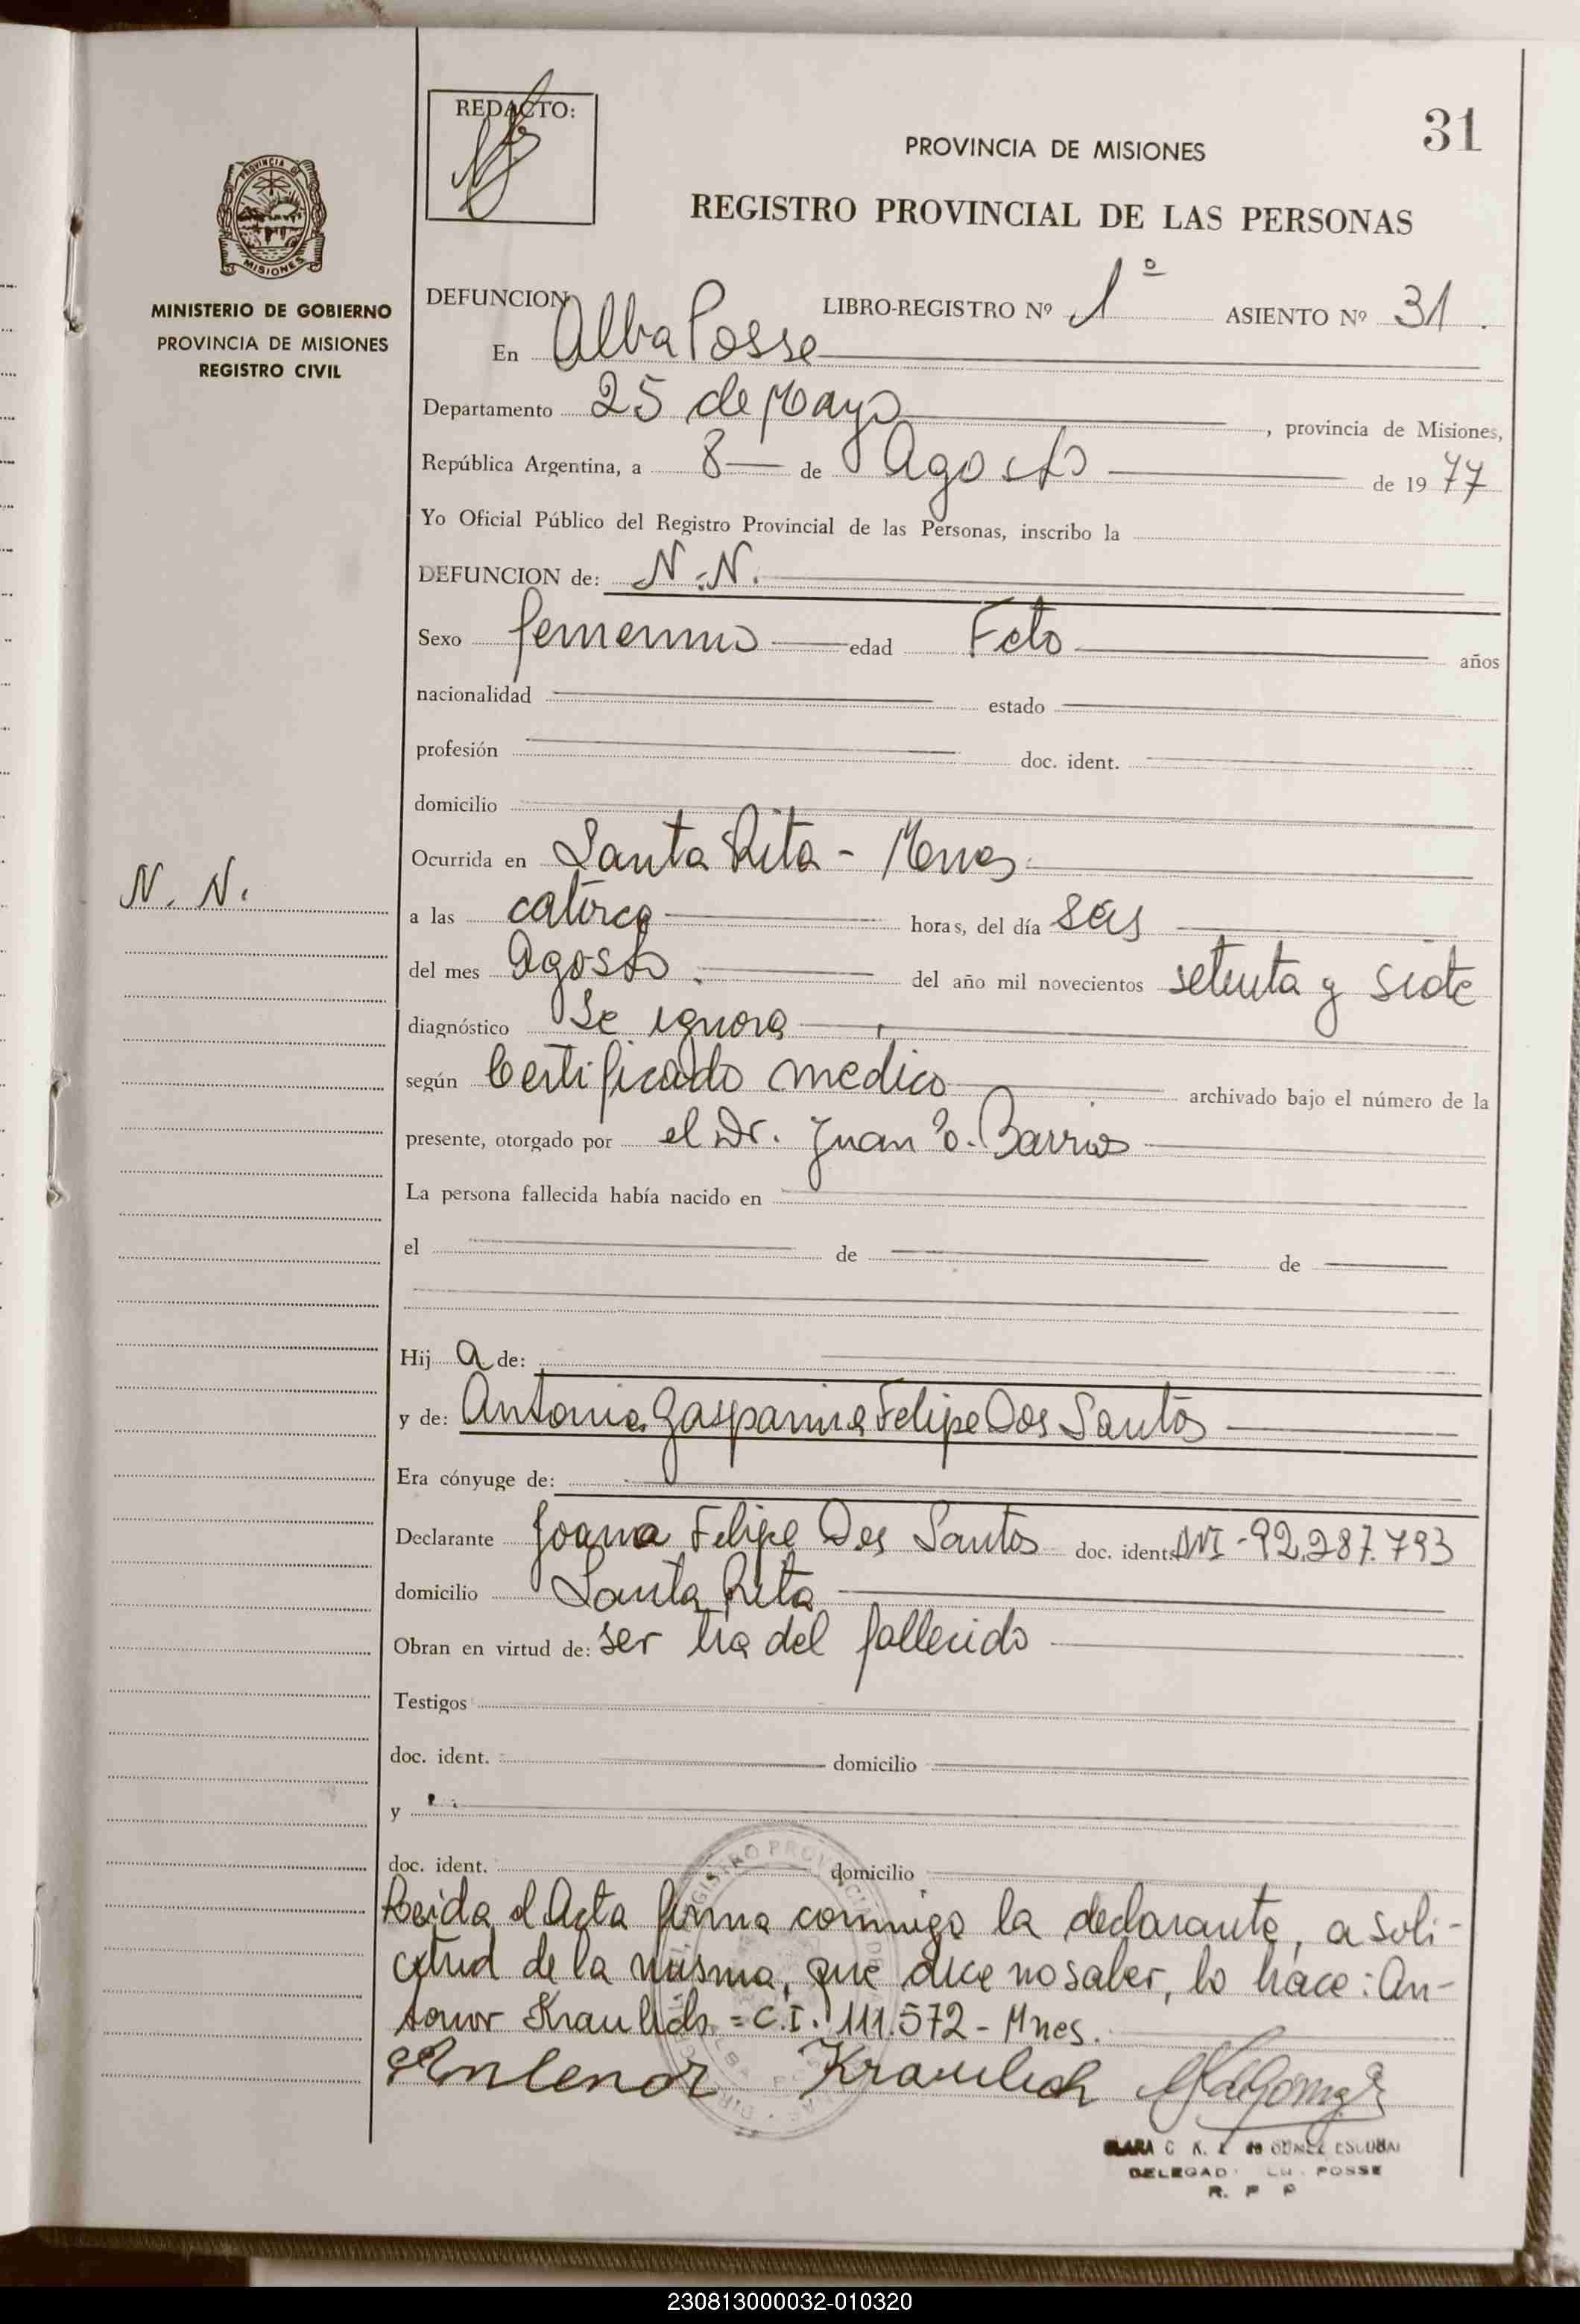 REDACTO:
31
PROVINCIA DE MISIONES
REGISTRO PROVINCIAL DE LAS PERSONAS
PROVINCIA
MISIONES
MINISTERIO DE GOBIERNO
PROVINCIA DE MISIONES
REGISTRO CIVIL
DEFUNCION LIBRO-REGISTRO Nº 1º ASIENTO Nº 31.
En Alba Posse
Departamento 25 de Mayo, provincia de Misiones,
República Argentina, a 8 de Agosto de 1977
Yo Oficial Público del Registro Provincial de las Personas, inscribo la
DEFUNCION de: N.N.
Sexo femenino edad Feto años
nacionalidad estado
profesión doc. ident.
domicilio
Ocurrida en Santa Rita - Mnes
N. N.
a las catorce horas, del día seis
del mes Agosto del año mil novecientos setenta y siete
diagnóstico Se ignora
según Certificado medico archivado bajo el número de la
presente, otorgado por el Dr. Juan O. Barrios
La persona fallecida había nacido en
el de de
Hija de:
y de: Antonia Gasparina Felipe Dos Santos
Era cónyuge de:
Declarante Joana Felipe Dos Santos doc. ident. DNI-92.287.793
domicilio Santa Rita
Obran en virtud de: ser tia del fallecido
Testigos
doc. ident. domicilio
y
doc. ident. domicilio
Leida el Acta firma conmigo la declarante, a soli-
citud de la misma, que dice no saber, lo hace: An-
tenor Kraulich = C.I. 111.572 - Mnes.
Antenor Kraulich
DELEGAD POSSE
R. P P
230813000032-010320